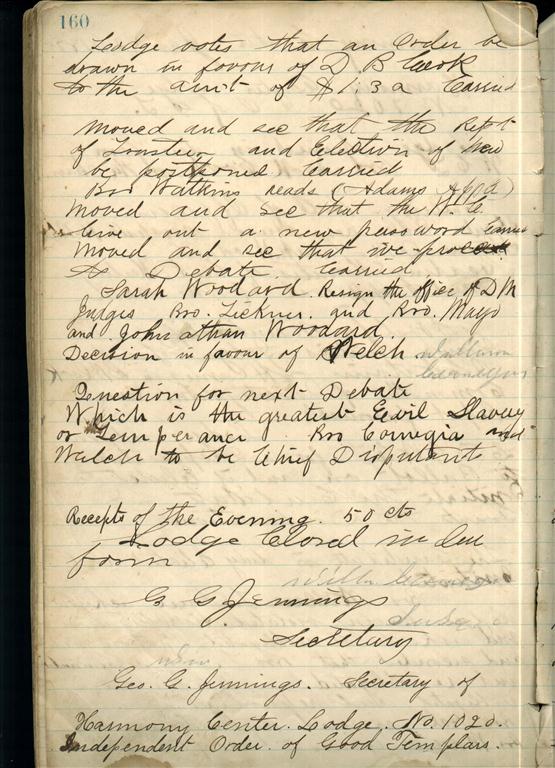 160
Lodge votes that an Order be
drawn in favour of D B Cook
to the amt of $1.32 Carried
Moved and sec that the Rept
of Trustees and Election of new
be postponed Carried
Bro Watkins reads (Adams &
Moved and sec that the W. C.
Give out a new password Carried
Moved and sec that we proceed
to Debate Carried
Sarah Woodard Resign the office of D M
Judges Bro. Lickner and Bro. Mayo
and Johnathan Woodard.
Decision in favour of Welch
Question for next Debate
Which is the greatest Eevil Slavery
or Temperance Bro Cornegia and
Welch to be Chief Disputants
Recepts of the Evening. 50 cts
Lodge Closed in due
form
G. G. Jennings
Secretary
Geo. G. Jennings. Secretary of
Harmony Center. Lodge. No. 1020.
Independent Order of Good Templars.